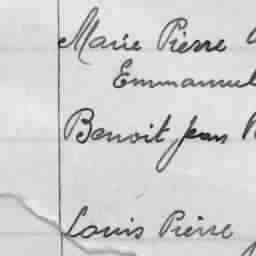 Marie Pierre
Emmanuel
Benoit Jean
Louis Pierre